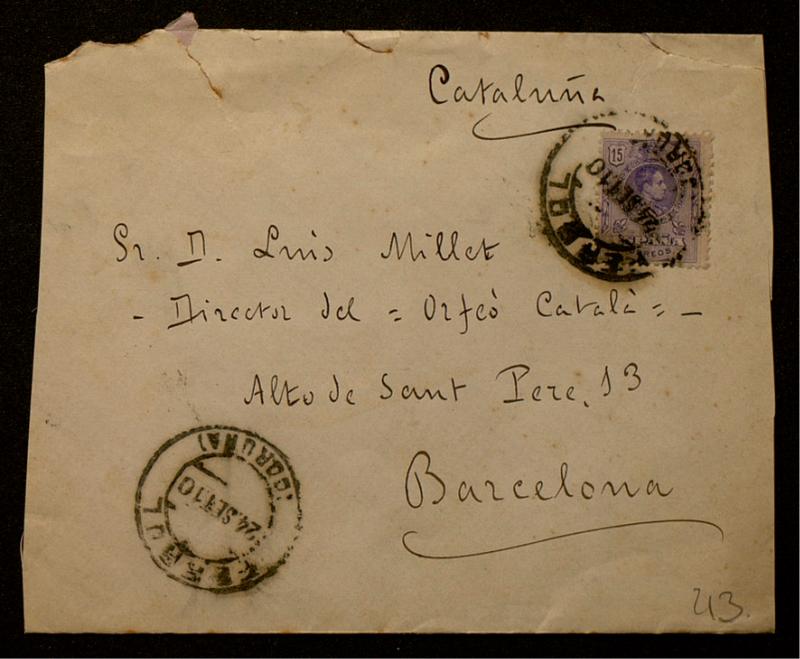 Cataluña
15
CORREOS
FERROL
24 SET 10
Sr. D. Luis Millet
- Director del = Orfeó Català = -
Alto de Sant Pere, 13
Barcelona
(CORUÑA)
24 SET 10
FERROL
213.